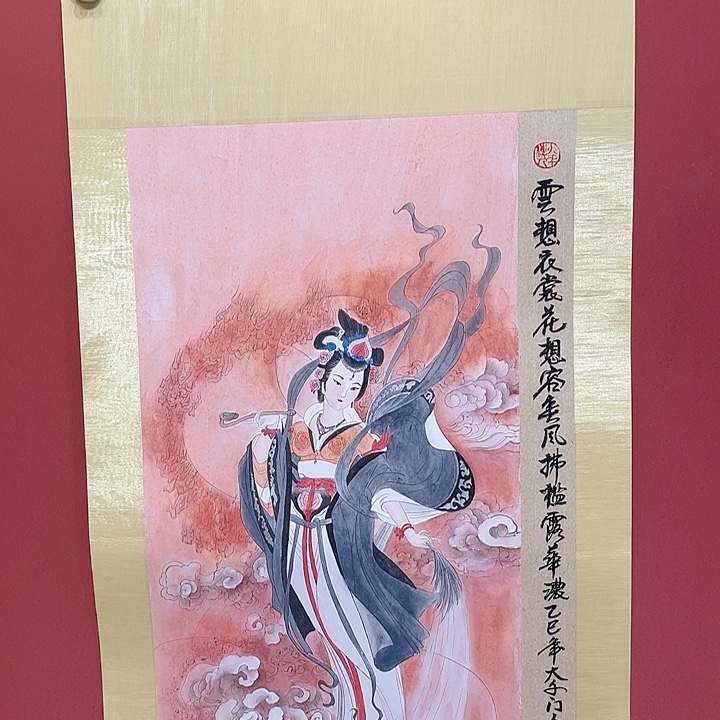 雲想衣裳花想容春風拂檻露華濃乙巳年大千门